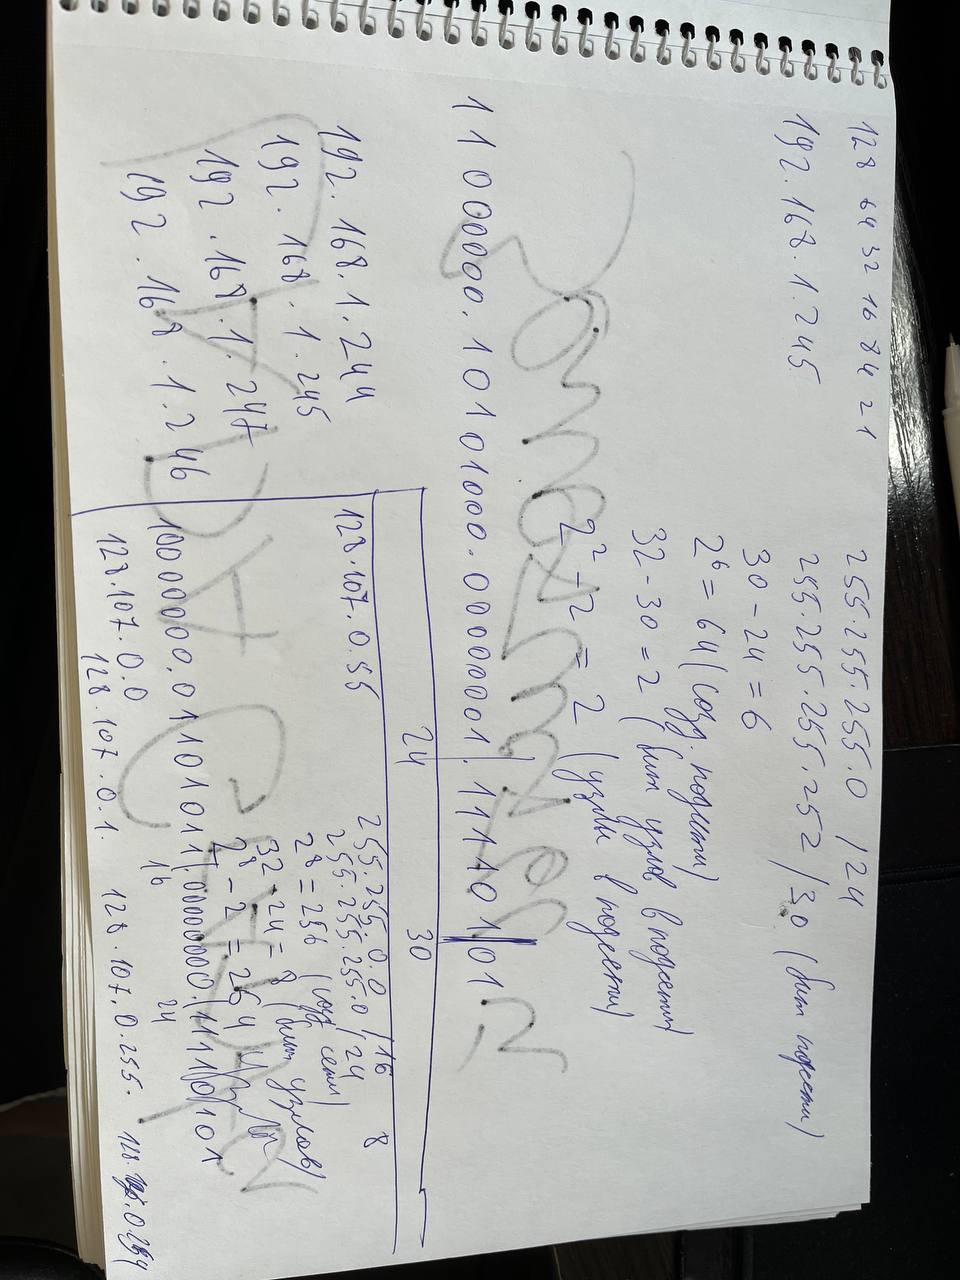 128 64 32 16 8 4 2 1
255.255.255.0 /24
192.168.1.245
255.255.255.252 /30 (бит подсети)
30 - 24 = 6
2⁶ = 64 (созд. подсети)
32 - 30 = 2 (бит узлов в подсети)
2² - 2 = 2 (узлы в подсети)
11000000.10101000.00000001.11110101
24 30
192.168.1.244
192.168.1.245
192.168.1.247
192.168.1.246
128.107.0.55
255.255.0.0 /16
255.255.255.0 /24
2⁸ = 256 (созд сети)
32 - 24 = 8 (бит узлов)
2⁸ - 2 = 254
8
10000000.01101011.00000000.
16 24
128.107.0.0
128.107.0.1.
128.107.0.255.